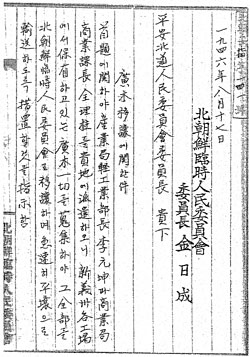 一九四六年八月十七日
北朝鮮臨時人民委員會
委員長 金日成
平安北道人民委員會委員長 貴下
廣木移讓에關한件
首題에關하야産業局輕工業部長李元坤과商業局
商業課長全理柱를貴地에派遣하오니 新義州各工場
에서保有하고있는廣木一切를蒐集하야그全部를
北朝鮮臨時人民委員會로移讓하며急速히平壤으로
輸送하도록措置할것을指示함
北朝鮮臨時人民委員會